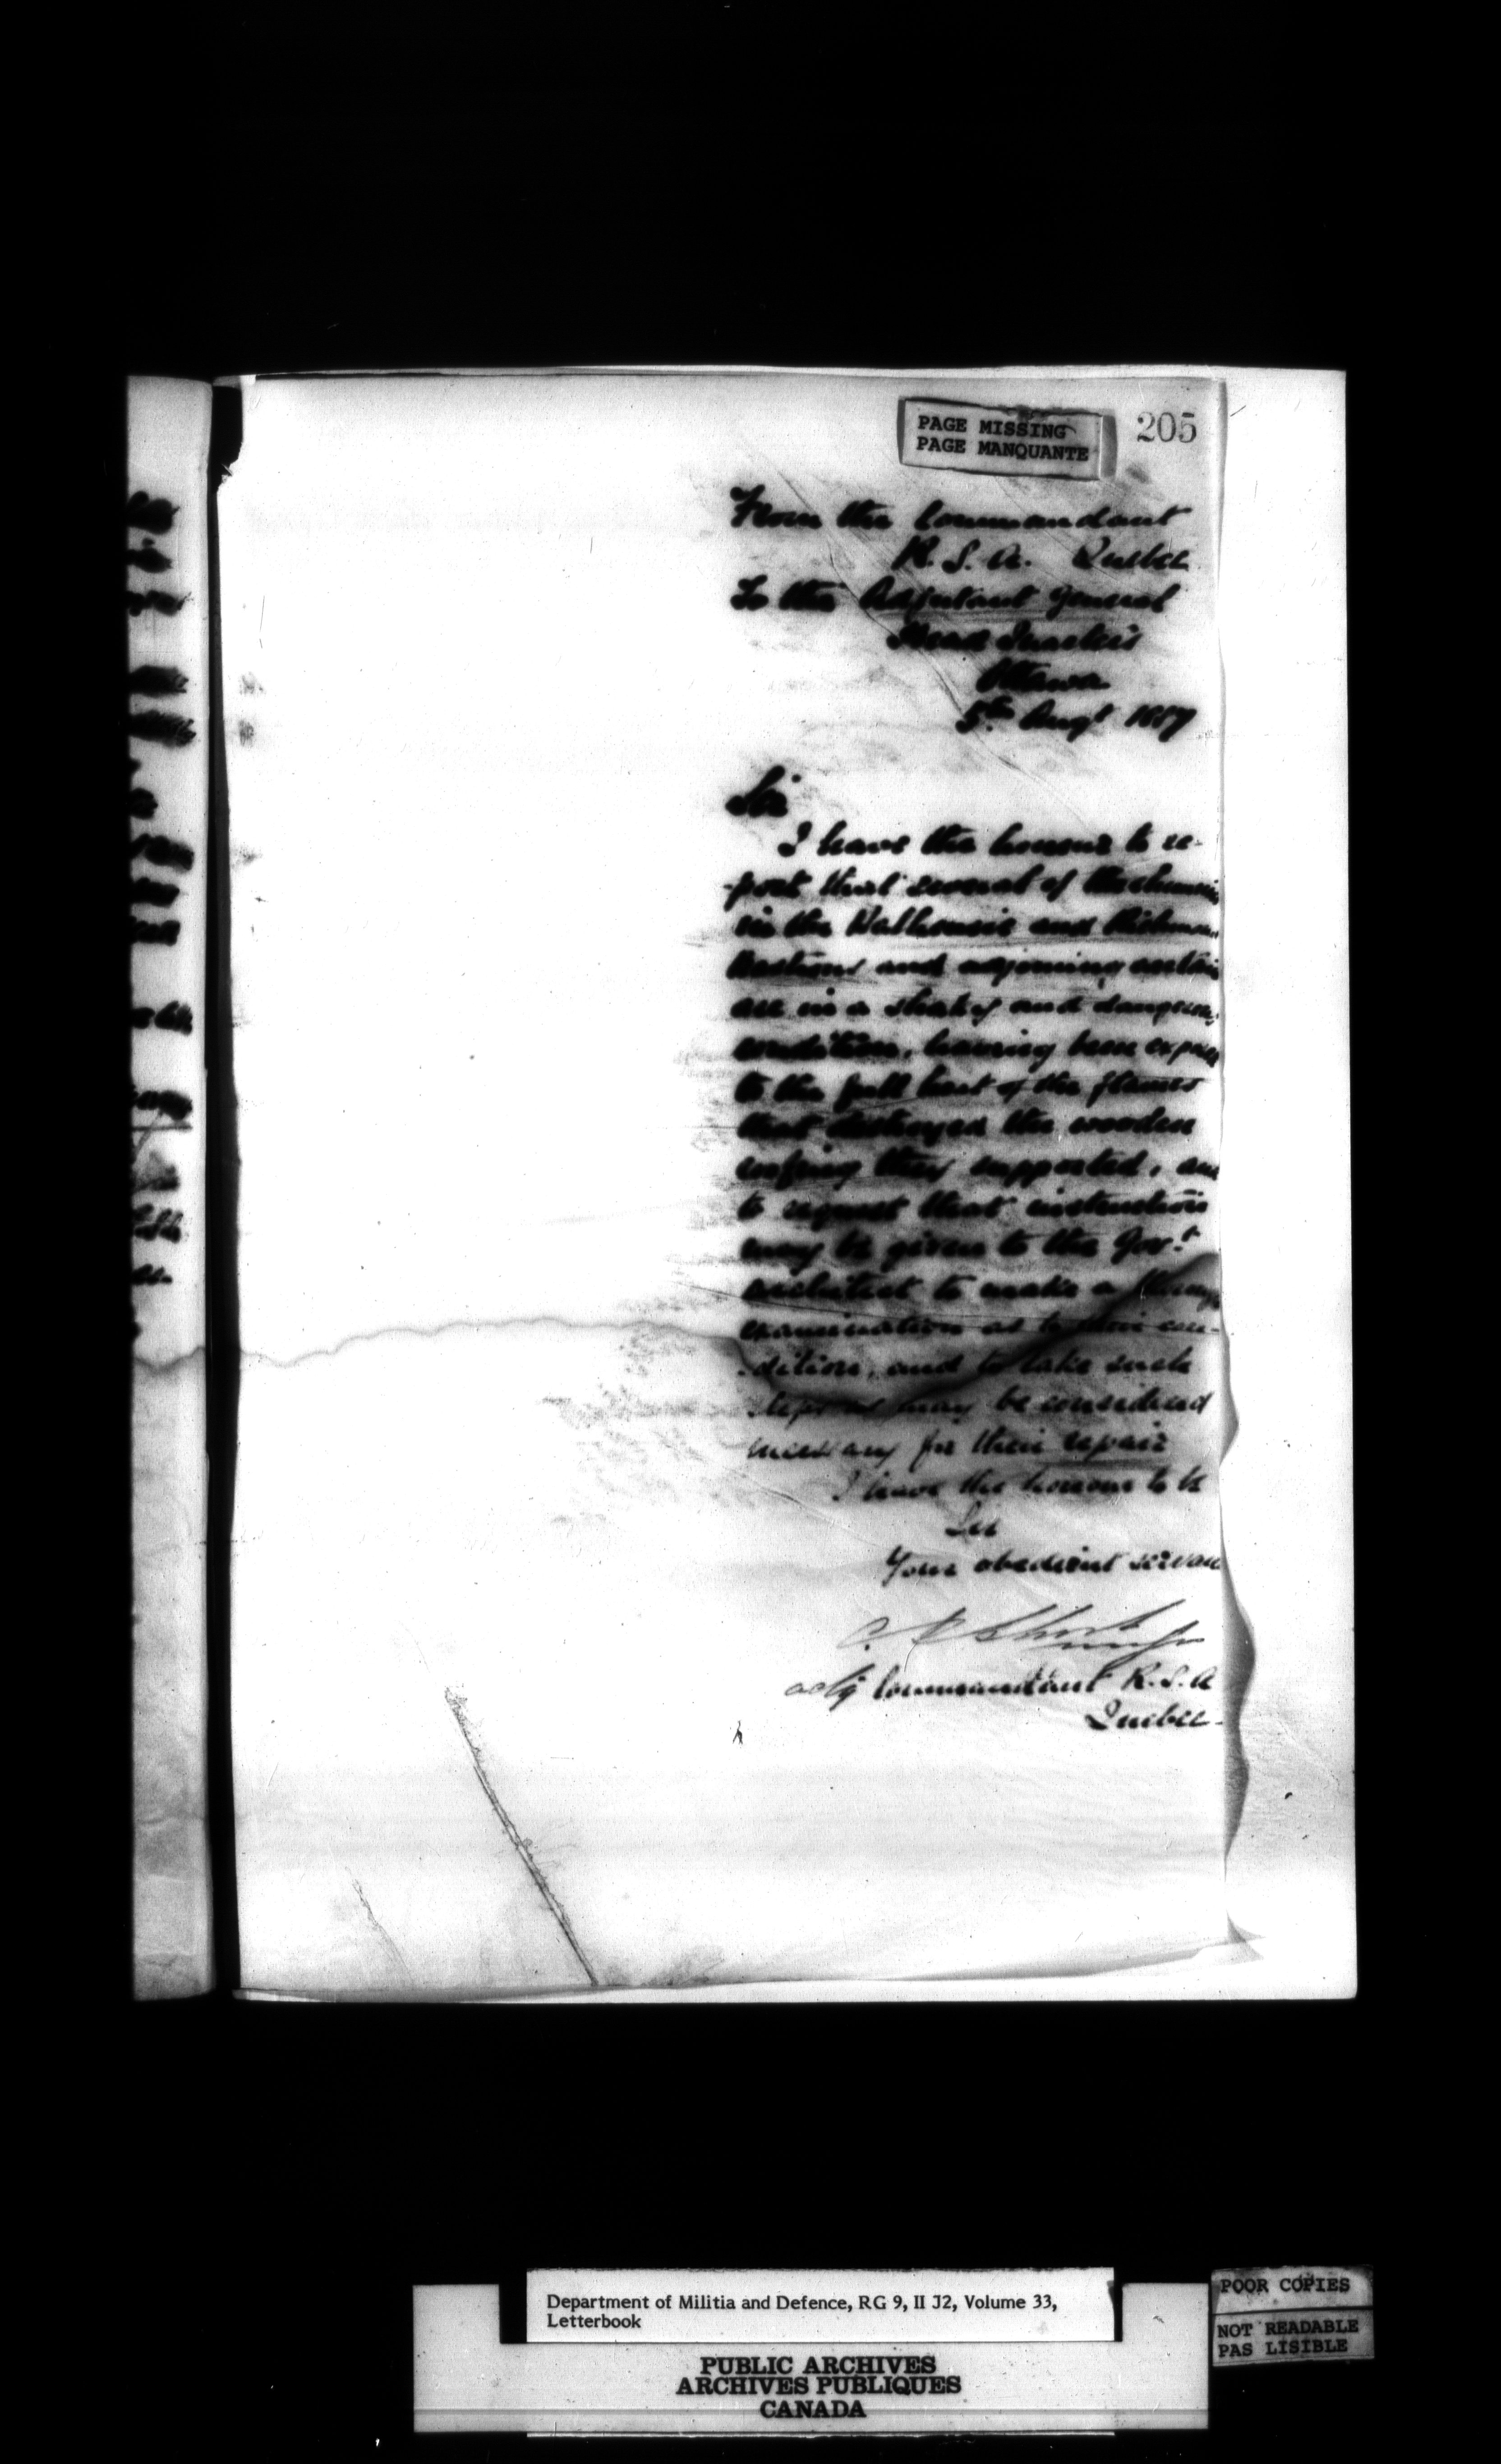 PAGE MISSING
PAGE MANQUANTE
205
From the Commandant
R. S. A. Quebec
To the Adjutant General
Head Quarters
Ottawa
5th Augt 1887
Sir
I have the honour to re-
-port that several of the
in the Dalhousie and
Bastions and adjoining
are in a shaky and
condition, having been
to the full heat of the flames
that destroyed the wooden
roofing they supported, and
to request that instructions
may be given to the Govt
architect to make a
examination as to their con-
-dition, and to take such
steps as may be considered
necessary for their repair
I have the honour to be
Sir
Your obedient
C. Short
Major
actg Commandant R. S. A
Quebec-
Department of Militia and Defence, RG 9, II J2, Volume 33,
Letterbook
PUBLIC ARCHIVES
ARCHIVES PUBLIQUES
CANADA
POOR COPIES
NOT READABLE
PAS LISIBLE